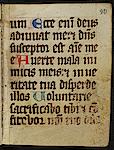 90
um Ecce eni deus
adiuuat me: ⁊ dñs
susceptor est aĩe me
e Auerte mala ini
micis meis: ⁊ in ue
ritate tua disperde
illos Uoluntarie
sacrificabo tibi: ⁊
fitebor